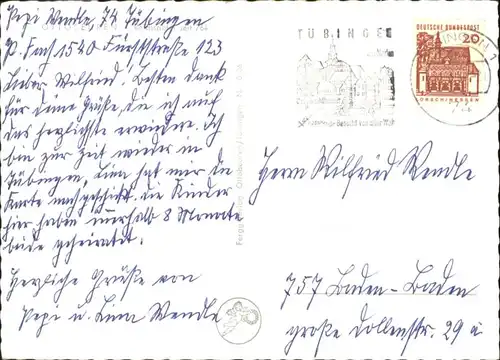 Pepi Wendle, 74 Tübingen
P. Fach 1540 Fürststraße 123
Lieber Wilfried. Besten Dank
für deine Grüße, die ich auf
das herzlichste erwidere. Ich
bin zur Zeit wieder in
Tübingen, Lina hat mir die
Karte nachgeschickt. Die Kinder
hier haben innerhalb 8 Monate
beide geheiratet.
Herzliche Grüße von
Pepi u. Lina Wendle
TÜBINGEN
DEUTSCHE BUNDESPOST
20
LORSCH/HESSEN
Herrn Wilfried Wendle
757 Baden-Baden
große Dollenstr. 29 a